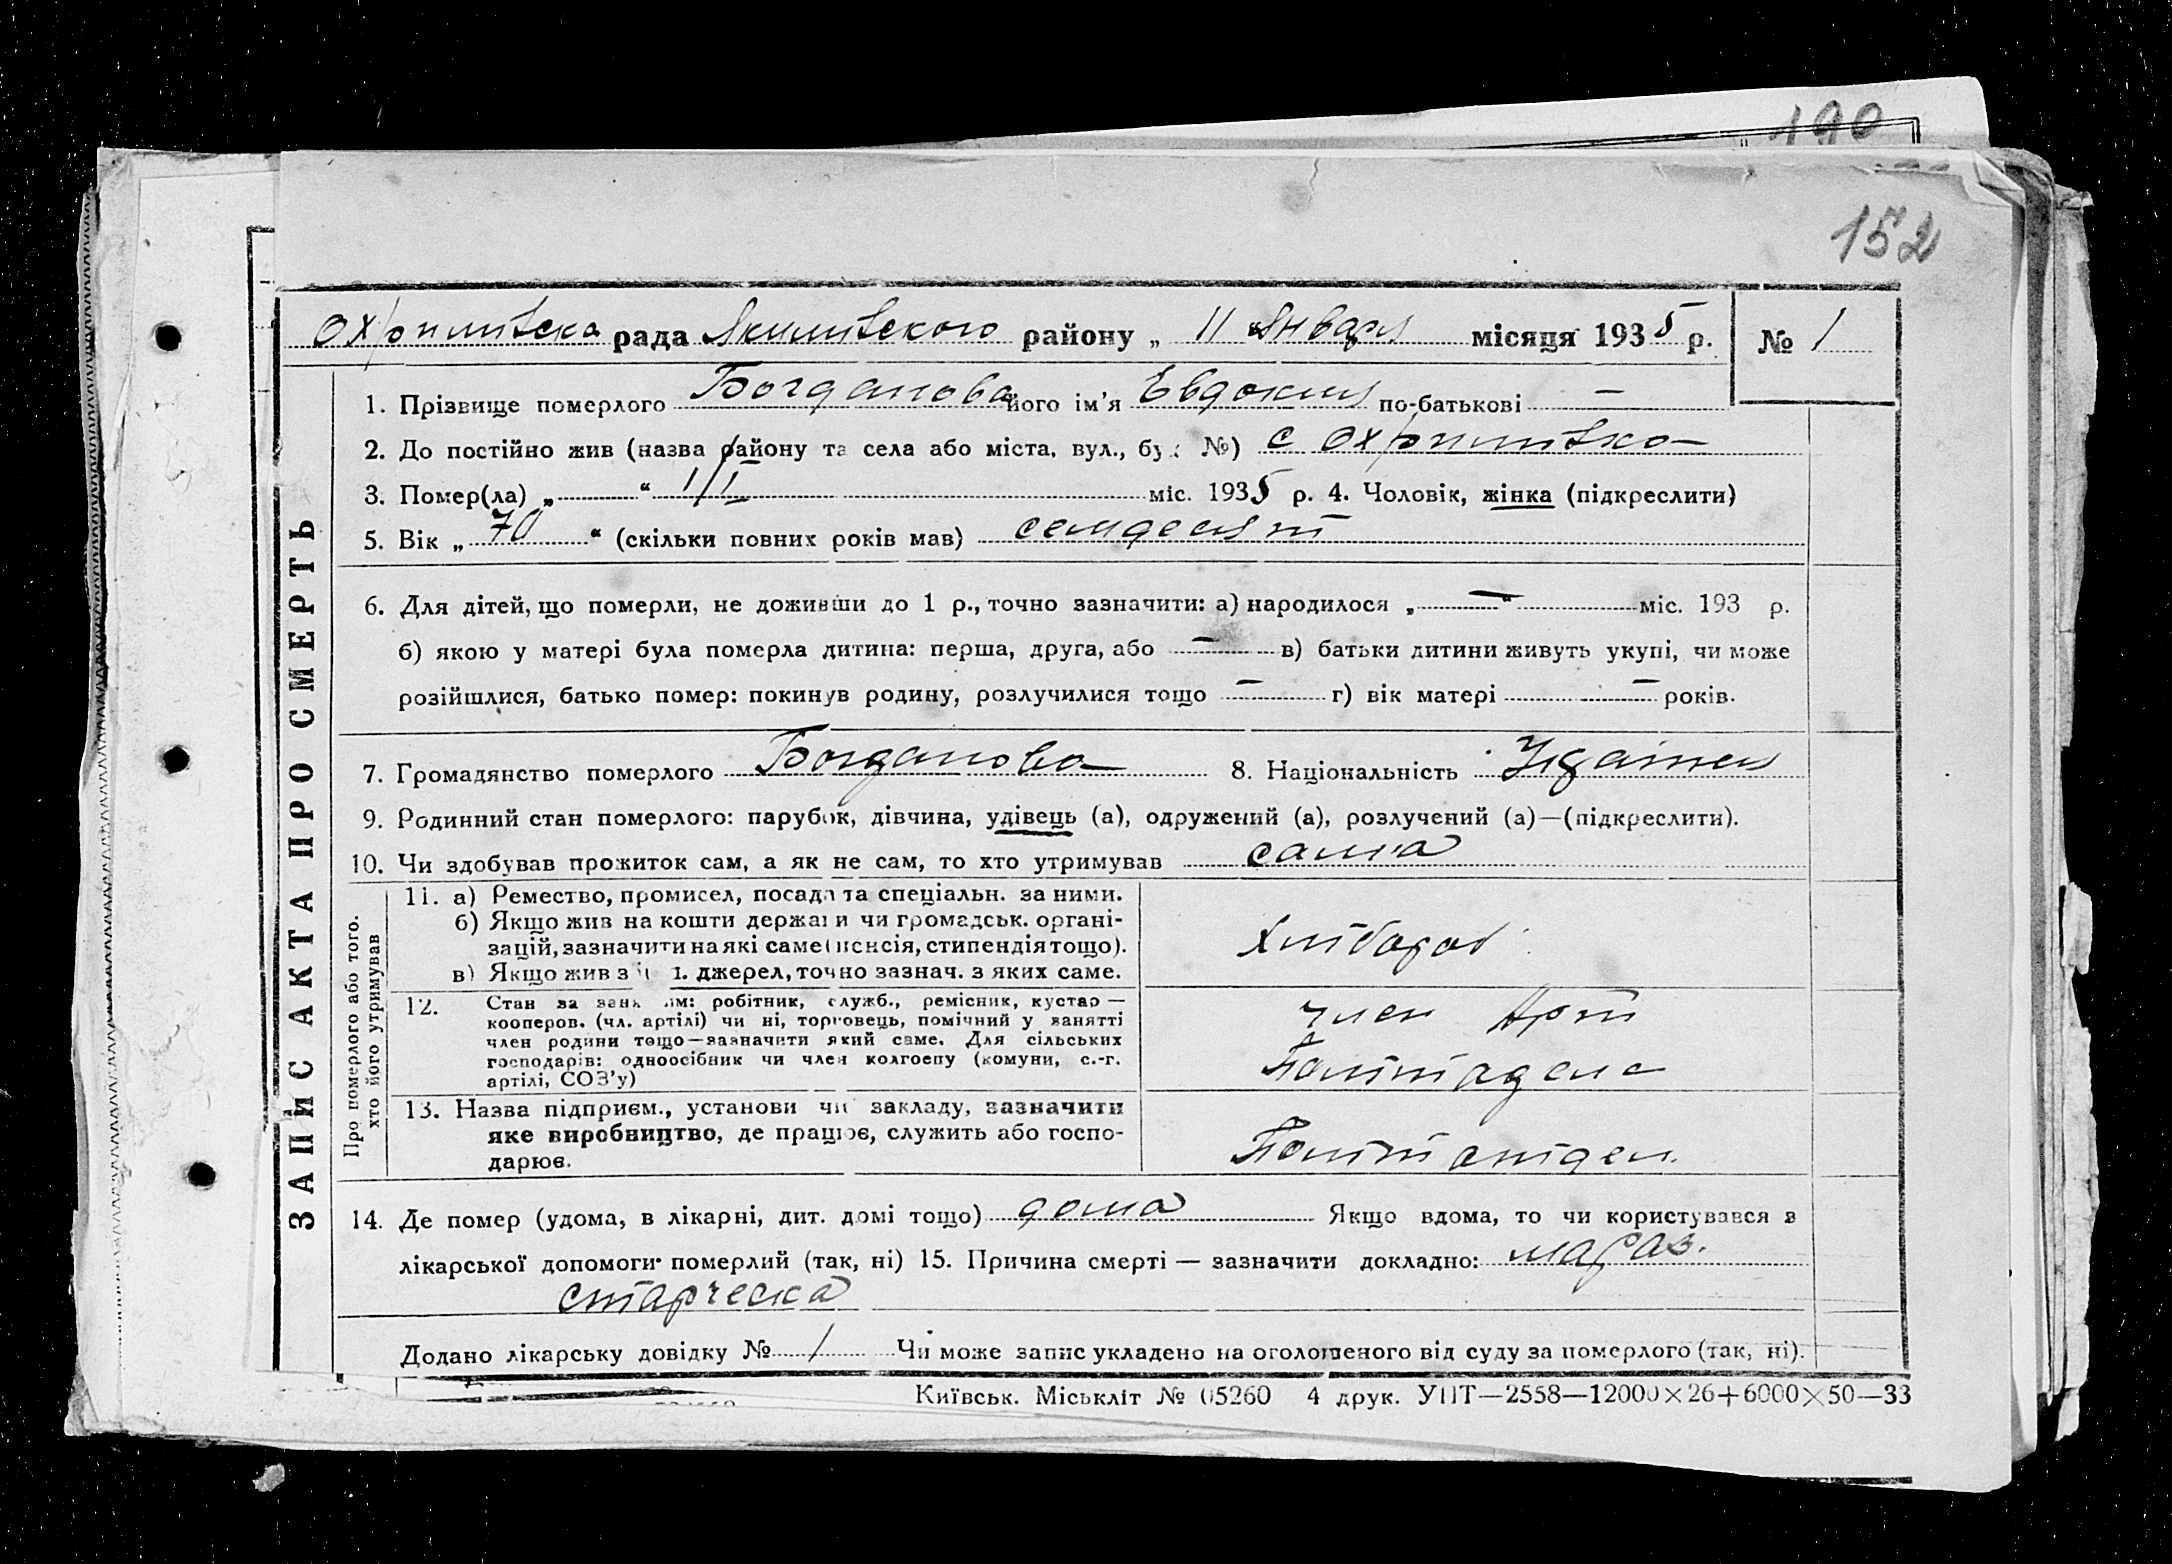 190
152
Охримівска рада Якимівского району „ 11 „ января місяця 1935 р. № 1
ЗАПИС АКТА ПРО СМЕРТЬ
1. Прізвище померлого Богданова його ім'я Евдокия по-батькові —
2. До постійно жив (назва району та села або міста, вул., буд. №) с Охримівка
3. Помер(ла) „ “ 1/I міс. 1935 р. 4. Чоловік, жінка (підкреслити)
5. Вік „ 70 “ (скільки повних років мав) семдесят
6. Для дітей, що померли, не доживши до 1 р., точно зазначити: а) народилося „ — “ міс. 193 р.
б) якою у матері була померла дитина: перша, друга, або — в) батьки дитини живуть укупі, чи може
розійшлися, батько помер: покинув родину, розлучилися тощо — г) вік матері — років.
7. Громадянство померлого Богданова 8. Національність
9. Родинний стан померлого: парубок, дівчина, удівець (а), одружений (а), розлучений (а)—(підкреслити).
10. Чи здобував прожиток сам, а як не сам, то хто утримував сама
Про померлого або того.
хто його утримував
11. а) Ремество, промисел, посада та спеціальн. за ними.
б) Якщо жив на кошти держави чи громадськ. органі-
зацій, зазначити на які саме (пенсія, стипендія тощо).
в) Якщо жив з ін. джерел, точно зазнач. з яких саме.
Хлібороб
12. Стан за занят им: робітник, служб., ремісник, кустар —
кооперов. (чл. артілі) чи ні, торговець, помічний у занятті
член родини тощо—зазначити який саме. Для сільських
господарів: одноосібник чи член колгоспу (комуни, с.-г.
артілі, СОЗ'у)
член Арт
13. Назва підприєм., установи чи закладу, зазначити
яке виробництво, де працює, служить або госпо-
дарює.
14. Де помер (удома, в лікарні, дит. домі тощо) дома Якщо вдома, то чи користувався з
лікарської допомоги померлий (так, ні) 15. Причина смерті — зазначити докладно: мараз.
старческа
Додано лікарську довідку № 1 Чи може запис укладено на оголошеного від суду за померлого (так, ні).
Київськ. Міськліт № 05260 4 друк. УПТ—2558—12000×26+6000×50—33